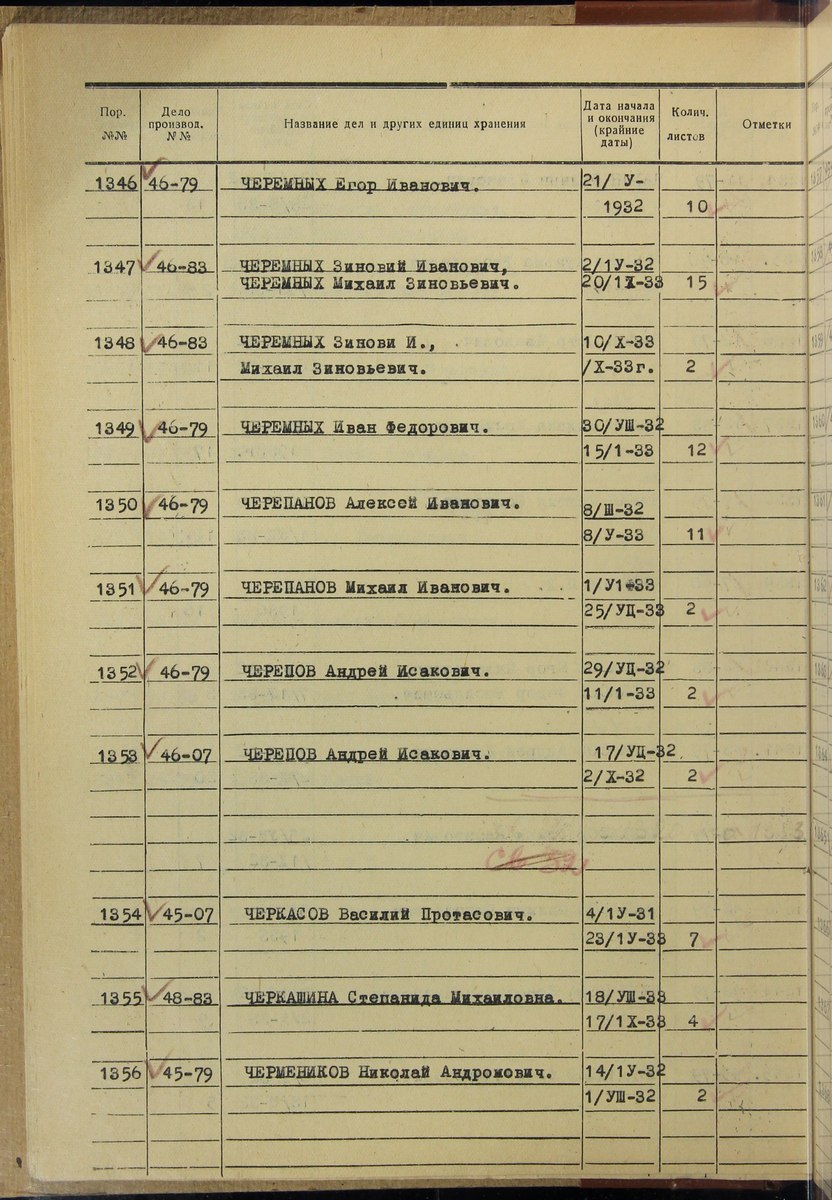 Пор. №№ Дело производ. №№ Название дел и других единиц хранения Дата начала и окончания (крайние даты) Колич. листов Отметки
1346 46-79 ЧЕРЕМНЫХ Егор Иванович. 21/ У-
1932 10
1347 46-83 ЧЕРЕМНЫХ Зиновий Иванович, 2/1У-32
ЧЕРЕМНЫХ Михаил Зиновьевич. 20/1Х-33 15
1348 46-83 ЧЕРЕМНЫХ Зинови И., 10/Х-33
Михаил Зиновьевич. /Х-33г. 2
1349 46-79 ЧЕРЕМНЫХ Иван Федорович. 30/УШ-32
15/1-33 12
1350 46-79 ЧЕРЕПАНОВ Алексей Иванович. 8/Ш-32
8/У-33 11
1351 46-79 ЧЕРЕПАНОВ Михаил Иванович. 1/У1-33
25/УЦ-33 2
1352 46-79 ЧЕРЕПОВ Андрей Исакович. 29/УЦ-32
11/1-33 2
1353 46-07 ЧЕРЕПОВ Андрей Исакович. 17/УЦ-32
2/Х-32 2
1354 45-07 ЧЕРКАСОВ Василий Протасович. 4/1У-31
23/1У-33 7
1355 48-83 ЧЕРКАШИНА Степанида Михаиловна. 18/УШ-33
17/1Х-33 4
1356 45-79 ЧЕРМЕНИКОВ Николай Андромович. 14/1У-32
1/УШ-32 2